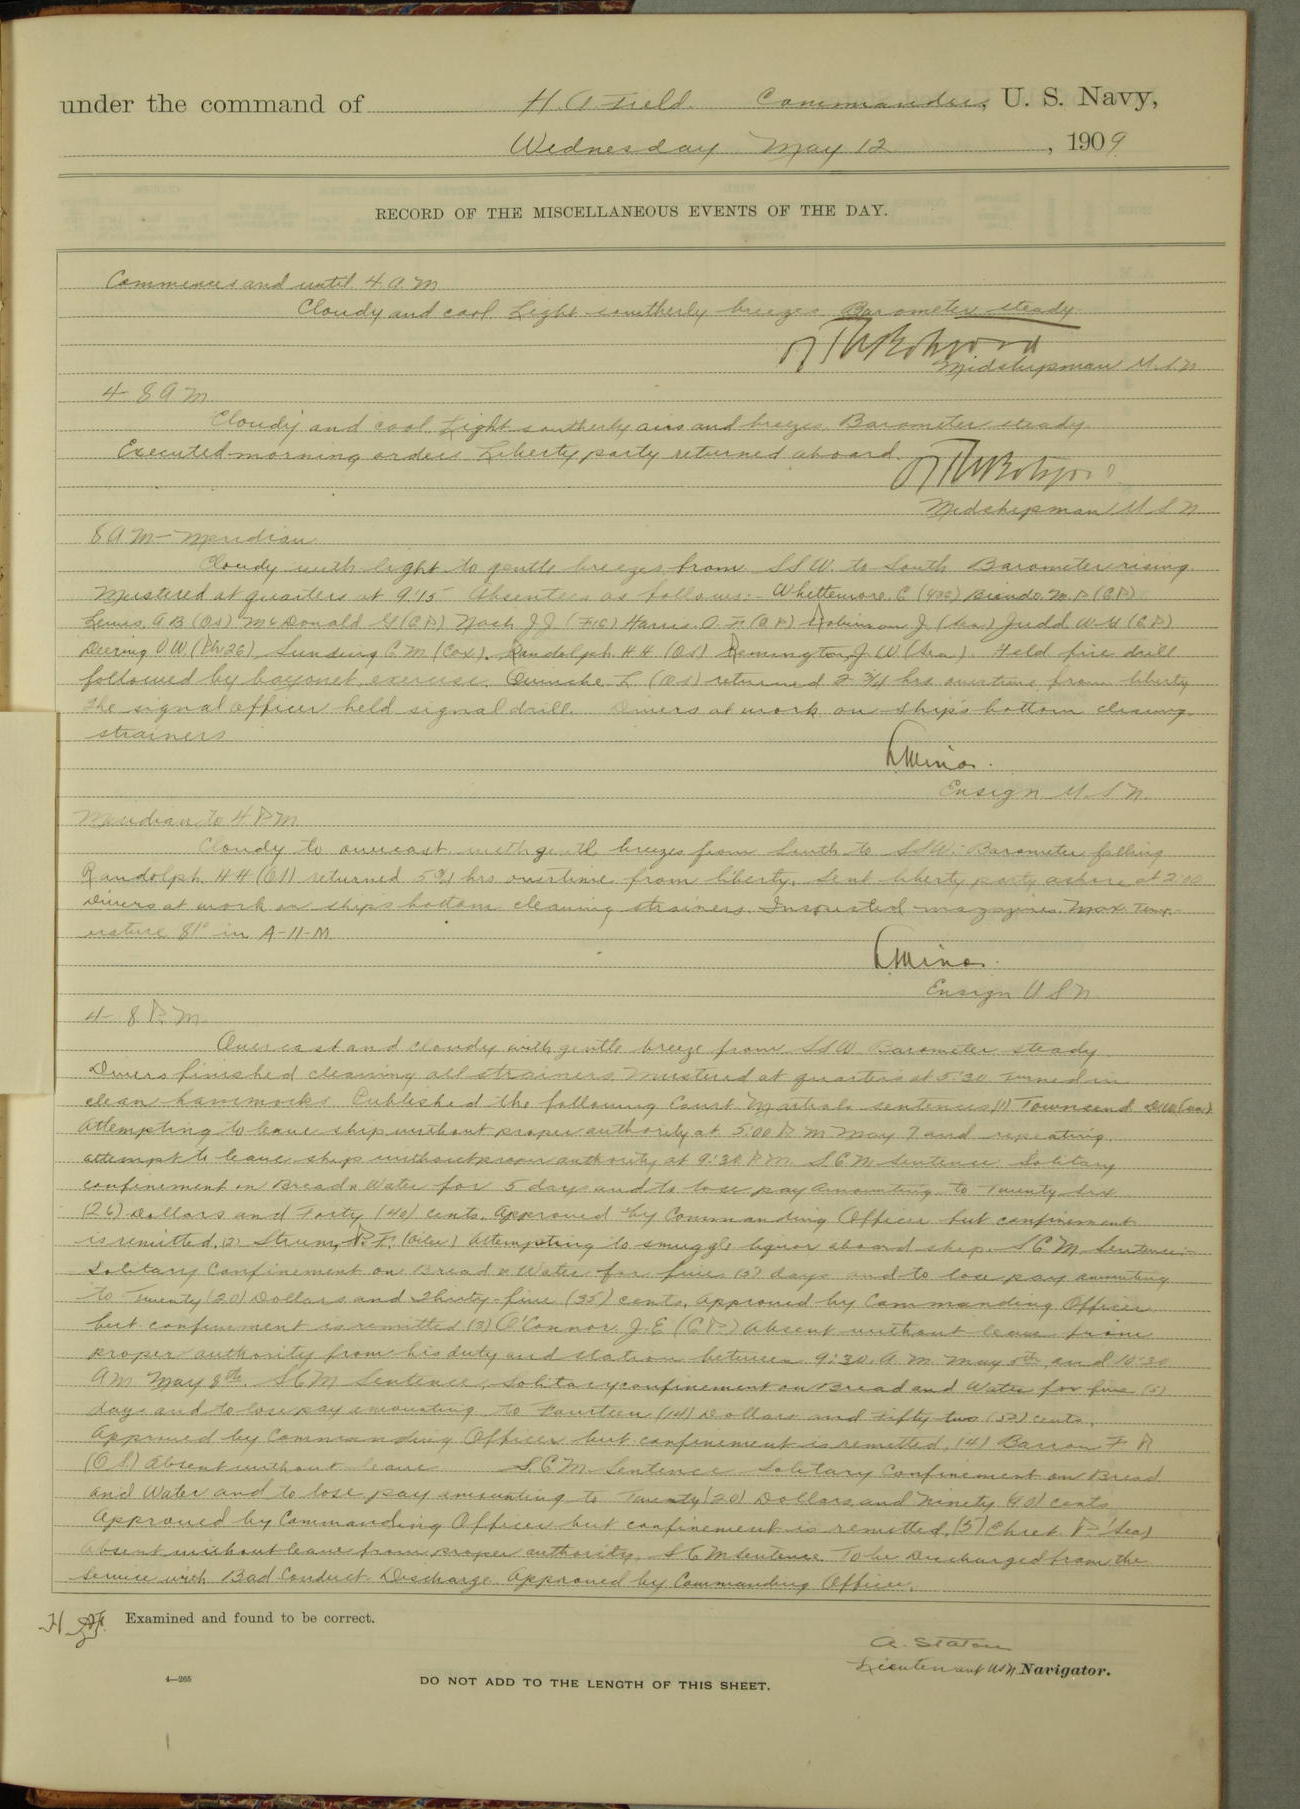 under the command of H A Field Commander, U. S. Navy,
Wednesday May 12, 1909
RECORD OF THE MISCELLANEOUS EVENTS OF THE DAY.
Commences and until 4 A M
Cloudy and cool Light southerly breezes Barometer steady
Midshipman U.S.N
4-8 A M
Cloudy and cool Light southerly airs and breezes Barometer steady
Executed morning orders Liberty party returned aboard.
Midshipman U S N
8 A M - Meridian
Cloudy with light to gentle breezes from SSW. to South Barometer rising
Mustered at quarters at 9:15 Absentees as follows:- Whittemore. C
Lewis. A B (OS) McDonald G (C.P.) Nash J J (F1C) Harris. O. F. (C.P.) Robinson J. (Sea) Judd W. G (C.P.)
Deering O W Sunding C M (Cox). Randolph H H (OS) Remington, J. W (Sea). Held fire drill
followed by bayonet exercise. L (OS) returned 2 3/4 hrs overtime from liberty
The signal officer held signal drill. Divers at work on ship's bottom cleaning
strainers
Ensign U S N.
Meridian to 4 P M
Cloudy to overcast with gentle breezes from South to SSW. Barometer falling
Randolph H H (OS) returned hrs overtime from liberty. Sent liberty party ashore at 2:00
Divers at work on ships bottom cleaning strainers. Inspected magazines. Max Temp-
erature 81° in A-11-M
Ensign U S N.
4- 8 P. M.
Overcast and cloudy with gentle breeze from SSW. Barometer steady
Divers finished cleaning all strainers. Mustered at quarters at 5:30 Turned in
clean hammocks. Published the following Court Martials sentences (1) Townsend
Attempting to leave ship without proper authority at 5:00 P M May 7 and repeating
attempt to leave ship without proper authority at 9:30 P M. S C M Sentence Solitary
confinement on Bread & Water for 5 days and to lose pay amounting to Twenty six
(26) Dollars and Forty (40) cents. Approved by Commanding Officer but confinement
is remitted. (2) Strum, P. F. (Oiler) Attempting to smuggle liquor aboard ship. S C M Sentence:-
Solitary Confinement on Bread & Water for five (5) days and to lose pay amounting
to Twenty (20) Dollars and Thirty-five (35) cents, Approved by Commanding Officer
but confinement is remitted (3) O'Connor. J. E (C P.) Absent without leave from
proper authority from his duty and station between 9:30 A. M. May 5th and 10:30
A M. May 8th. S C M Sentence, Solitary confinement on Bread and Water for five (5)
days and to lose pay amounting to Fourteen (14) Dollars and Fifty-two (52) cents.
Approved by Commanding Officer but confinement is remitted. (4) Barron F R
(O S.) Absent without leave S. C M Sentence Solitary Confinement on Bread
and Water and to lose pay amounting to Twenty (20) Dollars and Ninety (90) cents
Approved by Commanding Officer but confinement is remitted. (5) Ehret. P. (Sea)
absent without leave from proper authority. S C M sentence. To be Discharged from the
service with Bad Conduct Discharge. Approved by Commanding Officer.
Examined and found to be correct.
A. Staton
Lieutenant U S N Navigator.
4—265
DO NOT ADD TO THE LENGTH OF THIS SHEET.